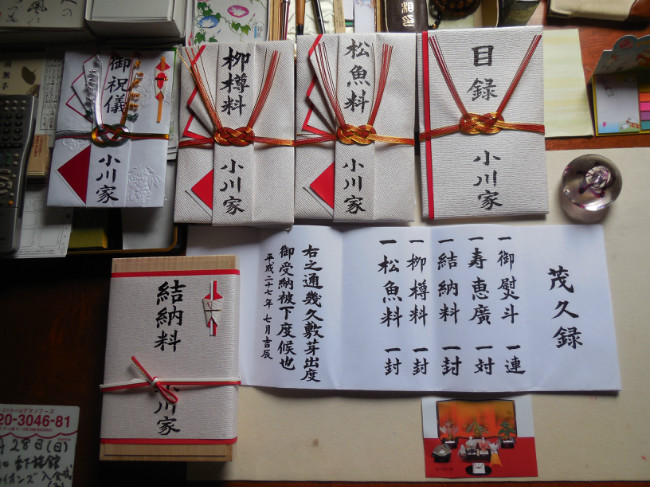 御祝儀
小川家
柳樽料
小川家
松魚料
小川家
目録
小川家
結納料
小川家
茂久録
一御熨斗 一連
一寿恵廣 一対
一結納料 一封
一柳樽料 一封
一松魚料 一封
右之通幾久敷芽出度
御受納被下度候也
平成二十七年 七月吉辰
20-3046-81
28日(日)